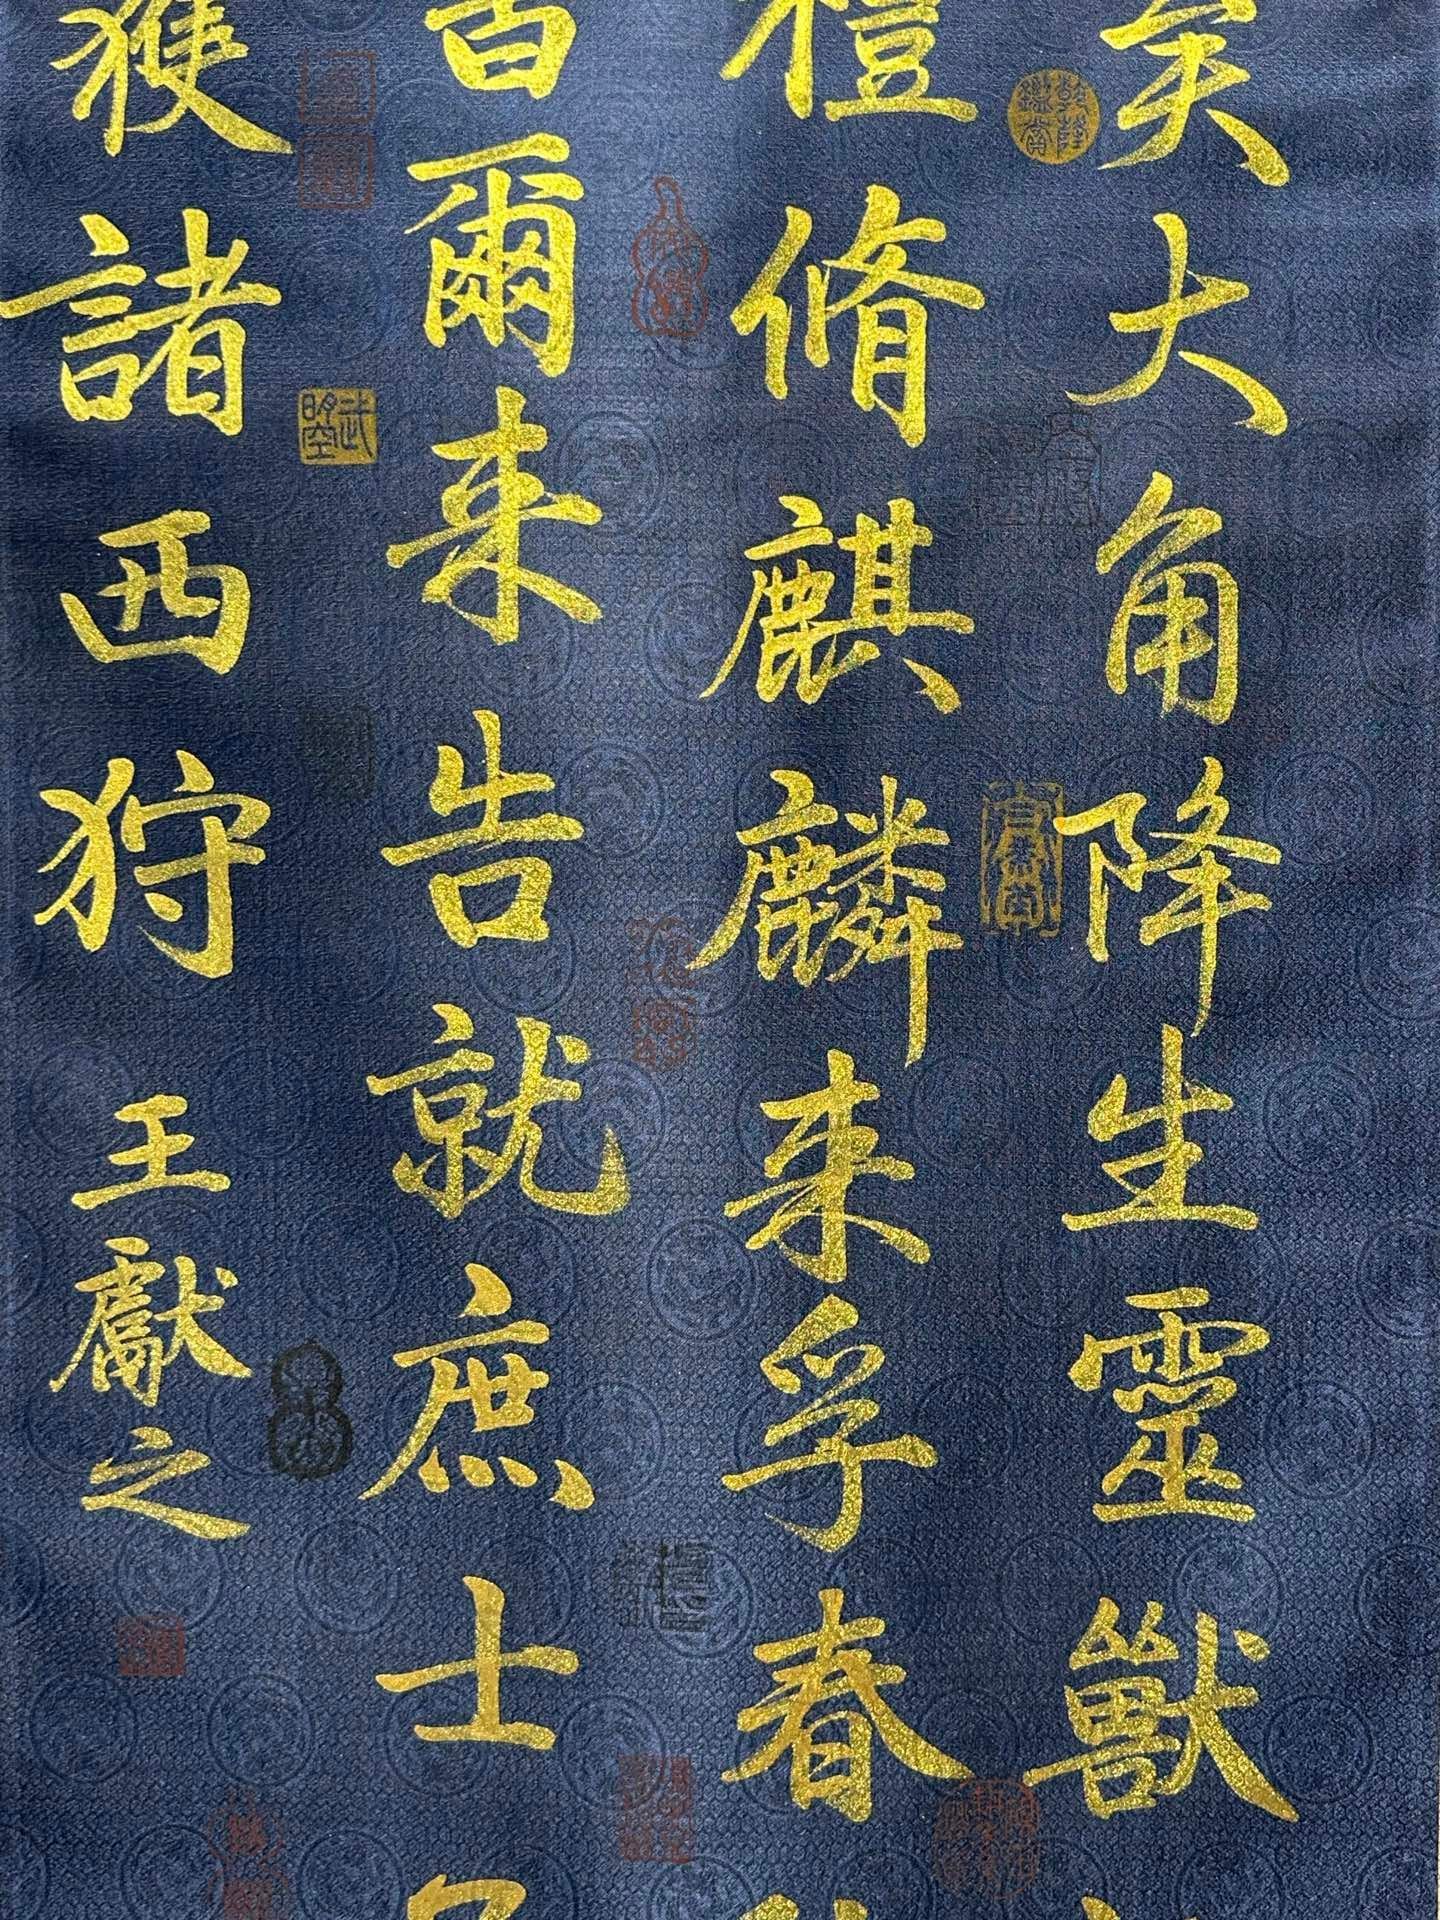 矣大角降生靈獸
禮脩麒麟来孚春
百爾来告就庶士
獲諸西狩
王獻之
武曌